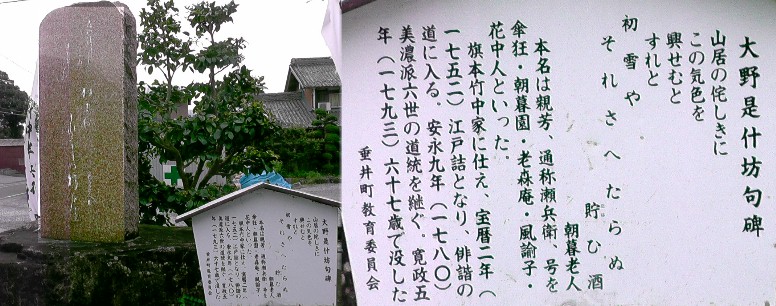 大野是什坊句碑
山居の侘しきに
この気色を
興せむと
すれと
初雪や
それさへたらぬ
貯む酒
朝暮老人
本名は親芳、通称瀬兵衛、号を
傘狂・朝暮園・老森庵・風諭子・
花中人といった。
旗本竹中家に仕え、宝暦二年（
一七五二）江戸詰となり、俳諧の
道に入る。安永九年（一七八〇）
美濃派六世の道統を継ぐ。寛政五
年（一七九三）六十七歳で没した
垂井町教育委員会